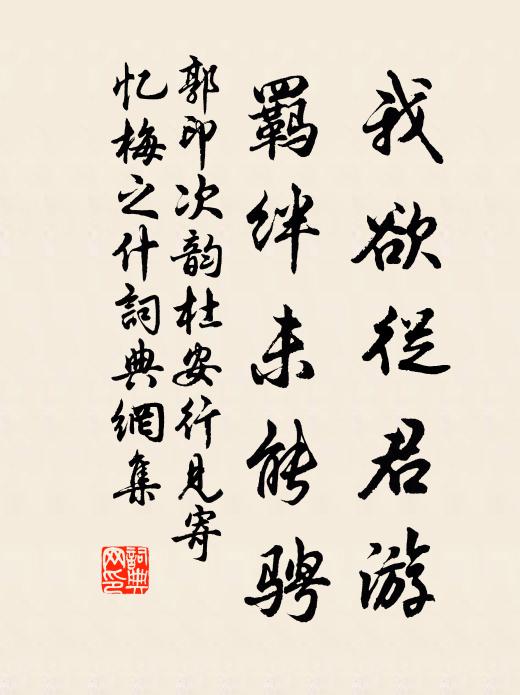 我欲從君游
羁絆未能骋
郭印次韵杜安行見寄
忆梅之什詞典網集
詞典
网印